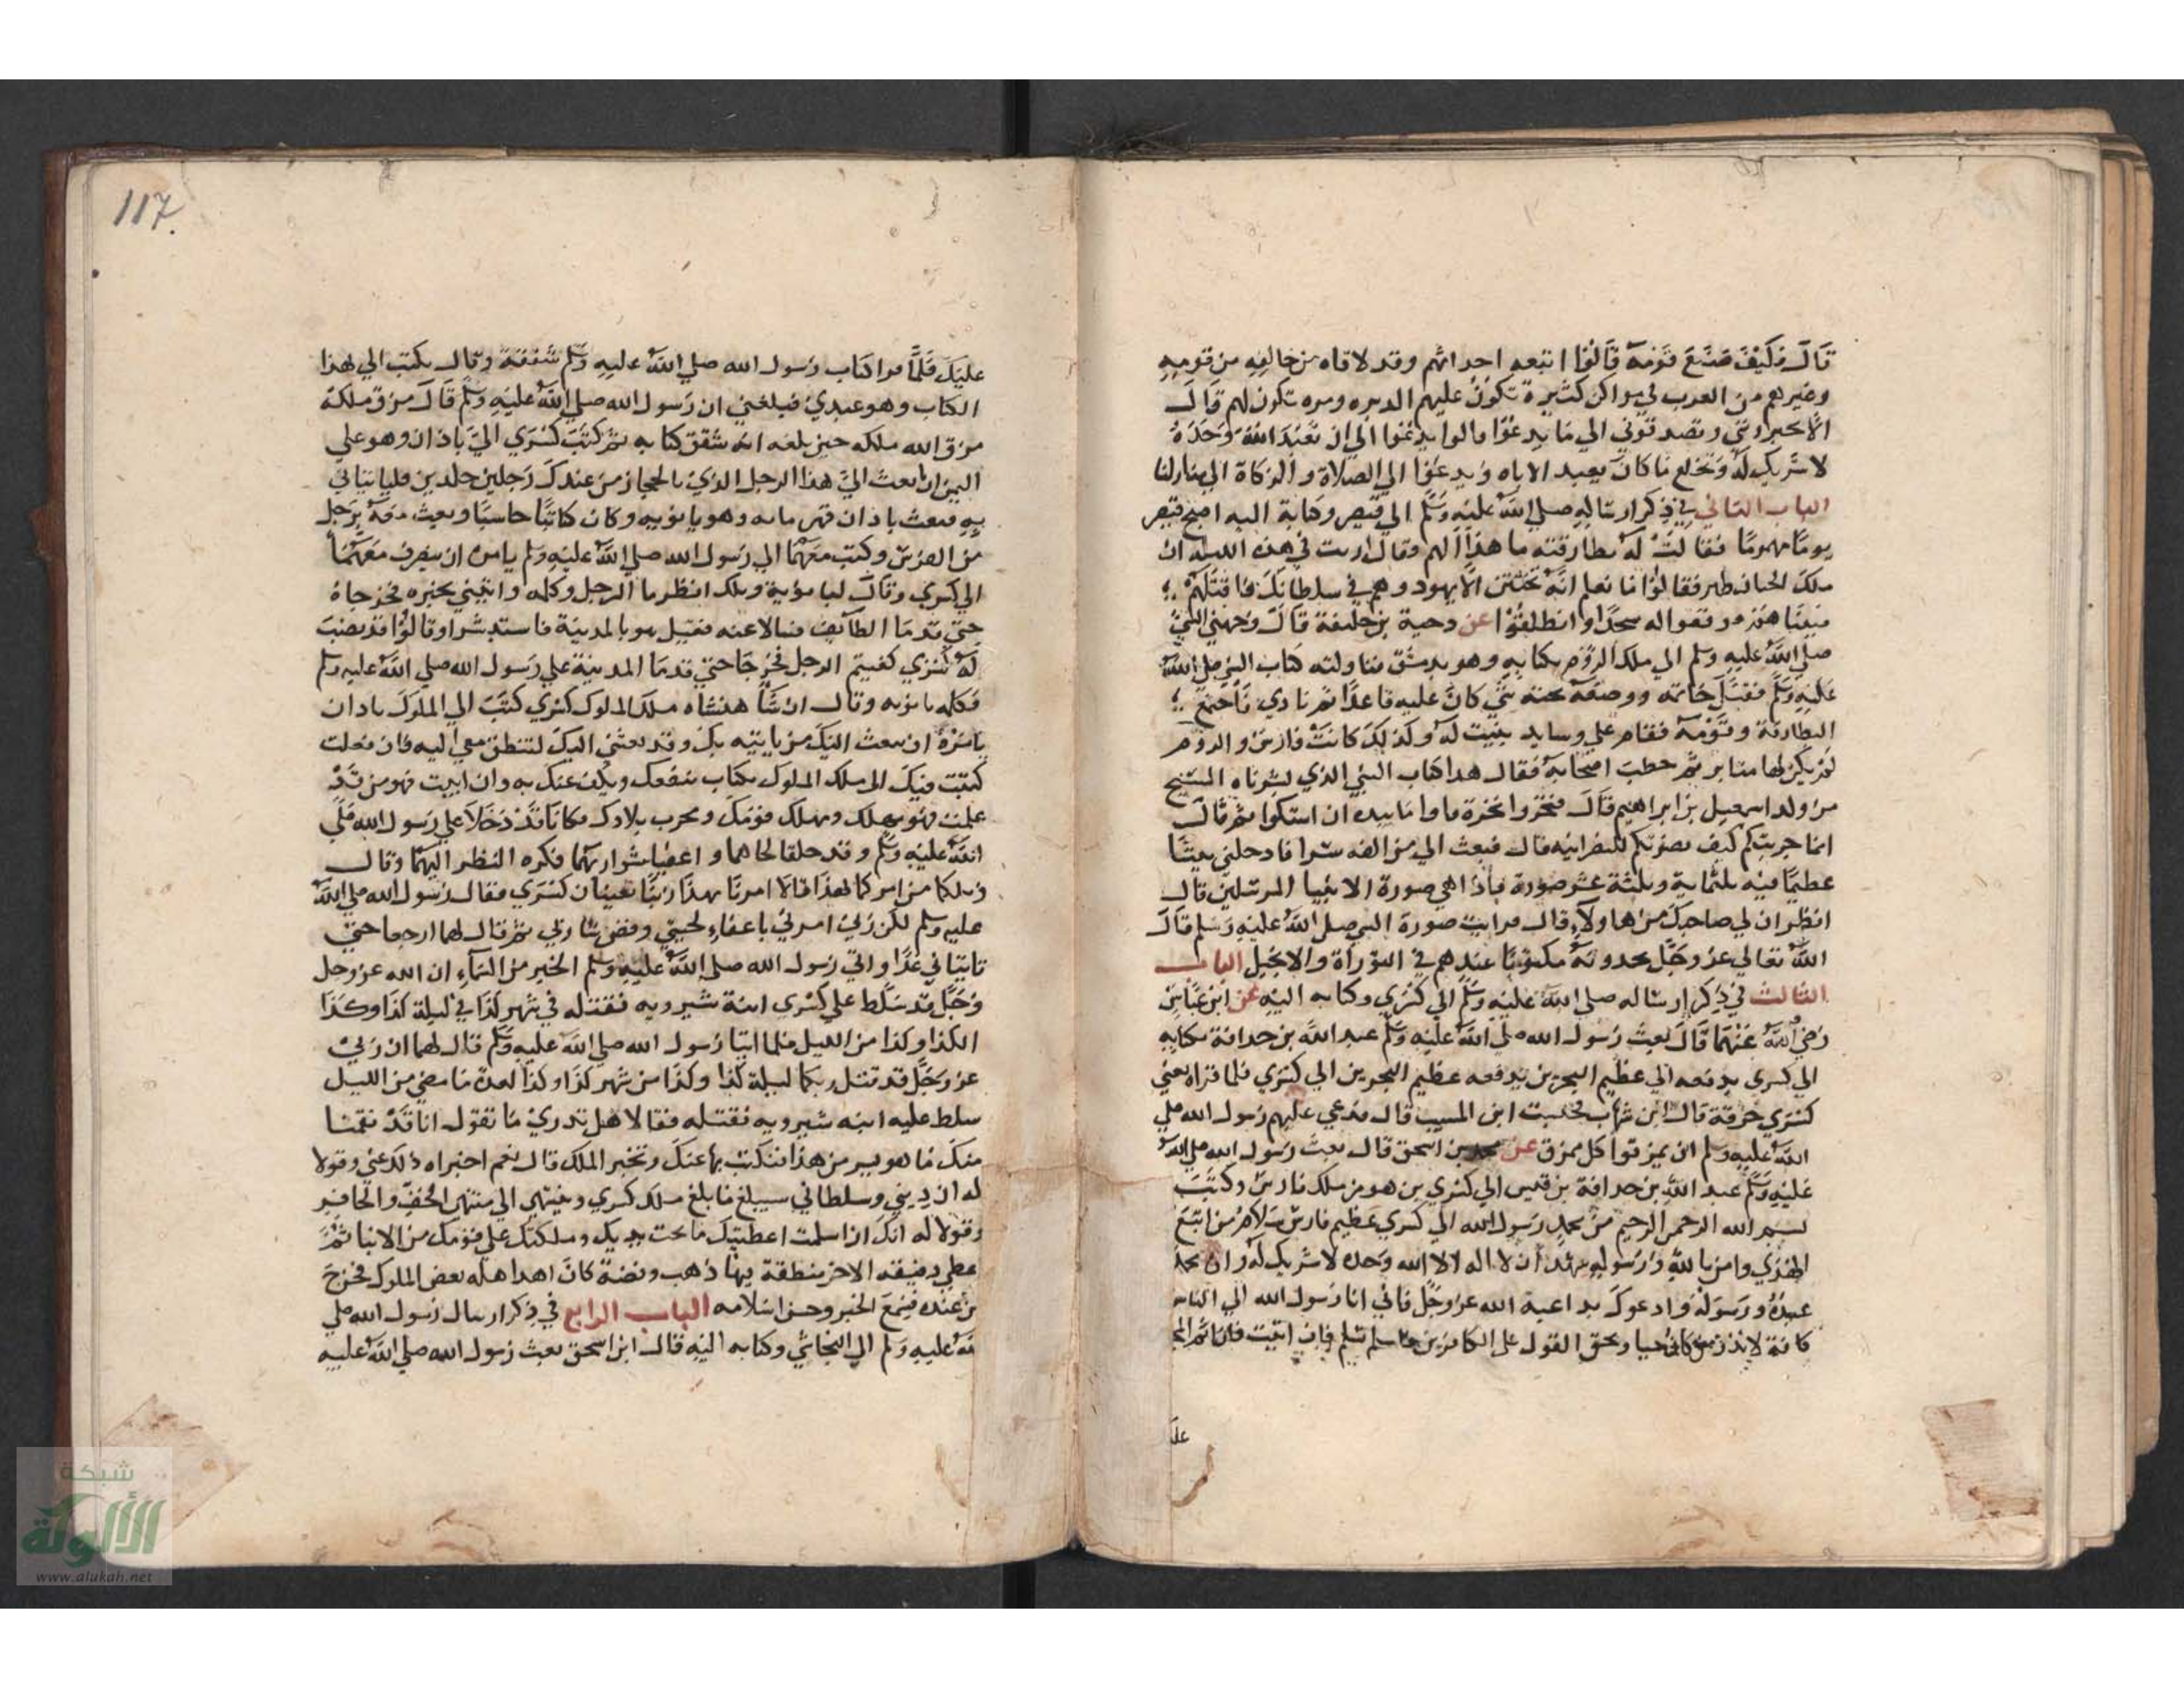 قال فكيف صنع قومه قالوا اتبعه احداثهم وقد لاقاه من خالفه من قومه
وغيرهم من العرب في مواكن كثيرة تكون عليهم الدبره ومره تكون لهم قال
الا تخبروني وتصدقوني الي ما يدعوا قالوا يدعوا الي ان نعبد الله وحده
لا شريك له ونخلع ما كان يعبد الاباه ويدعوا الي الصلاة والزكاة الي
الباب الثاني في ذكر ارساله صلي الله عليه وسلم الي قيصر وكتابة اليه اصبح قيصر
يوما مهموما فقالت له بطارقته ما هذا الهم وقال اريت في هذه الليلة ان
ملك الختان ظهر فقالوا ما نعلم انه تختتن الا يهود وهم في سلطانك فاقتلهم
وانطلقوا عن دحية بن خليفة قال وجهني النبي
صلي الله عليه وسلم الي ملك الروم بكتابه وهو بدمشق فناولته كتاب النبي صلي الله
عليه وسلم فقبل خاتمه ووضعه تحته شي كان عليه قاعدا ثم نادي فاجتمع
البطارقة وقومه فقام علي وسايد بنيت له وكذلك كانت فارس والروم
لم يكن لها منابر ثم خطب اصحابه فقال هدا كتاب النبي الذي بشرناه المسيح
من ولد اسمعيل بن ابراهيم قال فنخروا نخرة فاوما بيده ان اسكتوا ثم قال
انما جربتكم كيف نصرتكم للنصرانيه قال فبعث الي من الغد سرا فادخلني بيتا
عظيما فيه ثلثماية وثلثة عشر صورة فاذا هي صورة الانبيا المرسلين قال
انظر اين لي صاحبك من هاولاء قال فرايت صورة النبي صلي الله عليه وسلم قال
الله تعالي عز وجل يجدونه مكتوبا عندهم في التوراة والانجيل الباب
الثالث في ذكر ارساله صلي الله عليه وسلم الي كسري وكتابه اليه عن ابن عباس
رضي الله عنهما قال بعث رسول الله صلي الله عليه وسلم عبد الله بن حدافة بكتابه
الي كسري يدفعه الي عظيم البحرين يدفعه عظيم البحرين الي كسري فلما قراه يعني
كسري خرقة قال ابن شهاب فحسبت ابن المسيب قال فدعي عليهم رسول الله صلي
الله عليه وسلم ان يمزقوا كل ممزق عن محمد بن اسحق قال بعث رسول الله صلي الله
عليه وسلم عبد الله بن حدافة بن قيس الي كسري بن هرمز ملك فارس وكتب
بسم الله الرحمن الرحيم من محمد رسول الله الي كسري عظيم فارس سلام من اتبع
الهدي وامن بالله ورسوله وشهد ان لا اله الا الله وحده لا شريك له وان محمد
عبده ورسوله وادعوك بداعية الله عز وجل فاني انا رسول الله الي الناس
كافة لانذر من كان حيا ويحق القول علي الكافرين فاسلم تسلم فان ابيت فان اثم
علـ
117
عليك فلما قرا كتاب رسول الله صلي الله عليه وسلم شققه وقال يكتب الي هذا
الكتاب وهو عبدي فبلغني ان رسول الله صلي الله عليه وسلم قال مزق ملكه
مزق الله ملكه حين بلغه انه شقق كتابه ثم كتب كسري الي باذان وهو علي
اليمن ان ابعث الي هذا الرجل الذي بالحجاز من عندك رجلين جلدين فلياتياني
به فبعث باذان قهرمانه وهو بابويه وكان كاتبا حاسبا وبعث معه برجل
من الفرس وكتب معهما الي رسول الله صلي الله عليه وسلم يامره ان ينصرف معهما
الي كسري وقال لبابوية ويلك انظر ما الرجل وكلمه وائتيني بخبره فخرجاه
حتي قدما الطائف فسالا عنه فقيل هو بالمدينة فاستبشرا وقالوا قد نصب
له كسري كفيتم الرجل فخرجا حتي قدما المدينة علي رسول الله صلي الله عليه وسلم
فكلمه بابويه وقال ان شاهنشاه ملك الملوك كسري كتب الي الملوك باذان
يامره ان يبعث اليك من ياتيه بك وقد بعثني اليك لتنطق معي اليه فان فعلت
كتبت فيك الي ملك الملوك بكتاب ينفعك ويكف عنك به وان ابيت فهو من قد
علمت فهو مهلك ومهلك قومك ومخرب بلادك فكانا قد دخلا علي رسول الله صلي
الله عليه وسلم وقد حلقا لحاهما واعفيا شواربهما فكره النظر اليهما وقال
ويلكما من امركما بهذا قالا امرنا بهذا ربنا يعنيان كسري فقال رسول الله صلي الله
عليه وسلم لكن ربي امرني باعفاء لحيتي وقص شاربي ثم قال لهما ارجعا حتي
تاتياني غدا واتي رسول الله صلي الله عليه وسلم الخبر من السماء ان الله عز وجل
وجل قد سلط علي كسري ابنه شيرويه فقتله في شهر كذا في ليلة كذا وكذا
الكذا وكذا من الليل فلما اتيا رسول الله صلي الله عليه وسلم قال لهما ان ربي
عز وجل قد قتل ربكما ليلة كذا وكذا من شهر كذا وكذا لعدة ما مضي من الليل
سلط عليه ابنه شيرويه فقتله فقالا هل تدري ما تقول انا قد نقمنا
منك ما هو يسر من هذا فنكتب بها عنك ونخبر الملك قال نعم اخبراه ذلك عني وقولا
له ان ديني وسلطاني سيبلغ ما بلغ ملك كسري وينتهي الي منتهي الخف والحافر
وقولا له انك ان اسلمت اعطيتك ما تحت يديك وملكتك علي قومك من الابنا ثم
اعطي رفيقه الاخر منطقة فيها ذهب وفضة كان اهداها له بعض الملوك فخرج
من عنده فيسمع الخبر وحسن اسلامه الباب الرابع في ذكر ارسال رسول الله صلي
الله عليه وسلم الي النجاشي وكتابه اليه قال ابن اسحق بعث رسول الله صلي الله عليه
شبكة
الألوكة
www.alukah.net